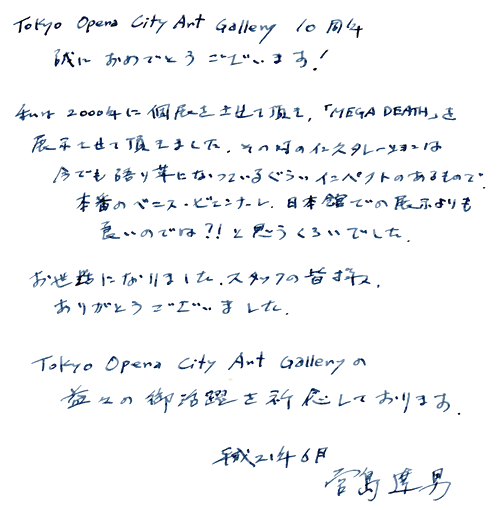 Tokyo Opera City Art Gallery 10周年
誠におめでとうございます!
私は2000年に個展をさせて頂き、「MEGA DEATH」を
展示させて頂きました。その時のインスタレーションは
今でも語り草になっているぐらいインペクトのあるもので、
本番のベニス・ビエンナーレ、日本館での展示よりも
良いのでは?!と思うくらいでした。
お世話になりました、スタッフの皆様、
ありがとうございました。
Tokyo Opera City Art Galleryの
益々の御活躍を祈念しております。
平成21年6月
宮島達男